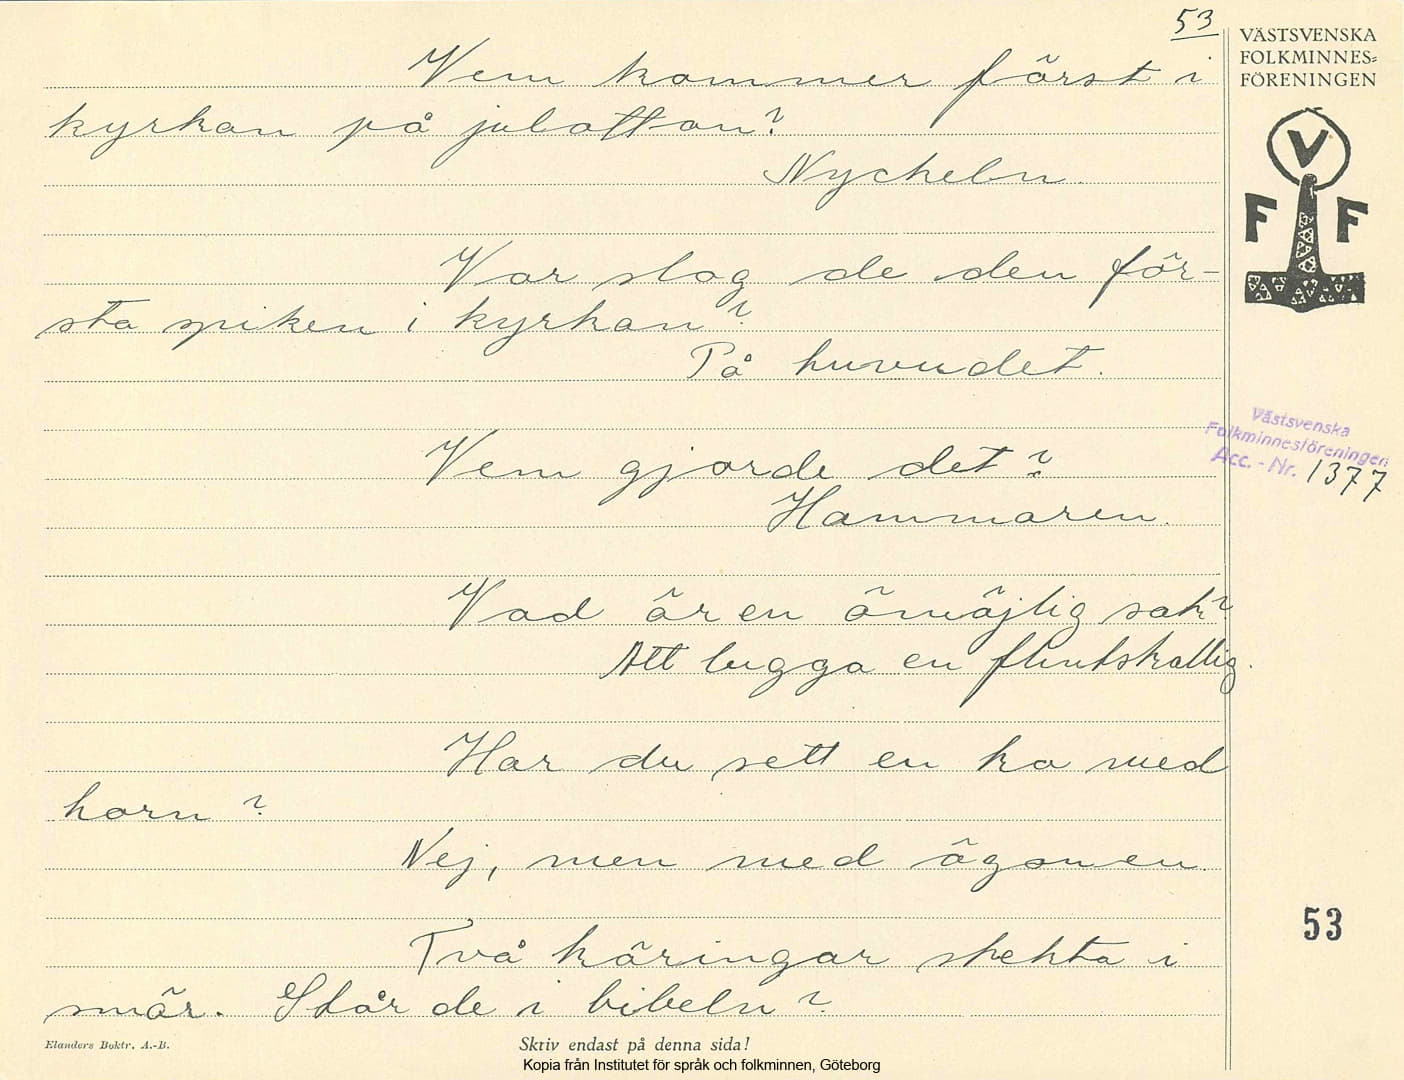 53
VÄSTSVENSKA
FOLKMINNES=
FÖRENINGEN
V
F F
Vem kommer först i
kyrkan på julottan?
Nyckeln.
Var slog de den för-
sta spiken i kyrkan?
På huvudet.
Vem gjorde det?
Hammaren.
Västsvenska
Folkminnesföreningen
Acc. - Nr. 1377
Vad är en omöjlig sak?
Att lugga en flintskallig.
Har du sett en ko med
horn?
Nej, men med ögonen.
Två käringar stekta i
smör. Står de i bibeln?
53
Elanders Boktr. A.-B.
Skriv endast på denna sida!
Kopia från Institutet för språk och folkminnen, Göteborg